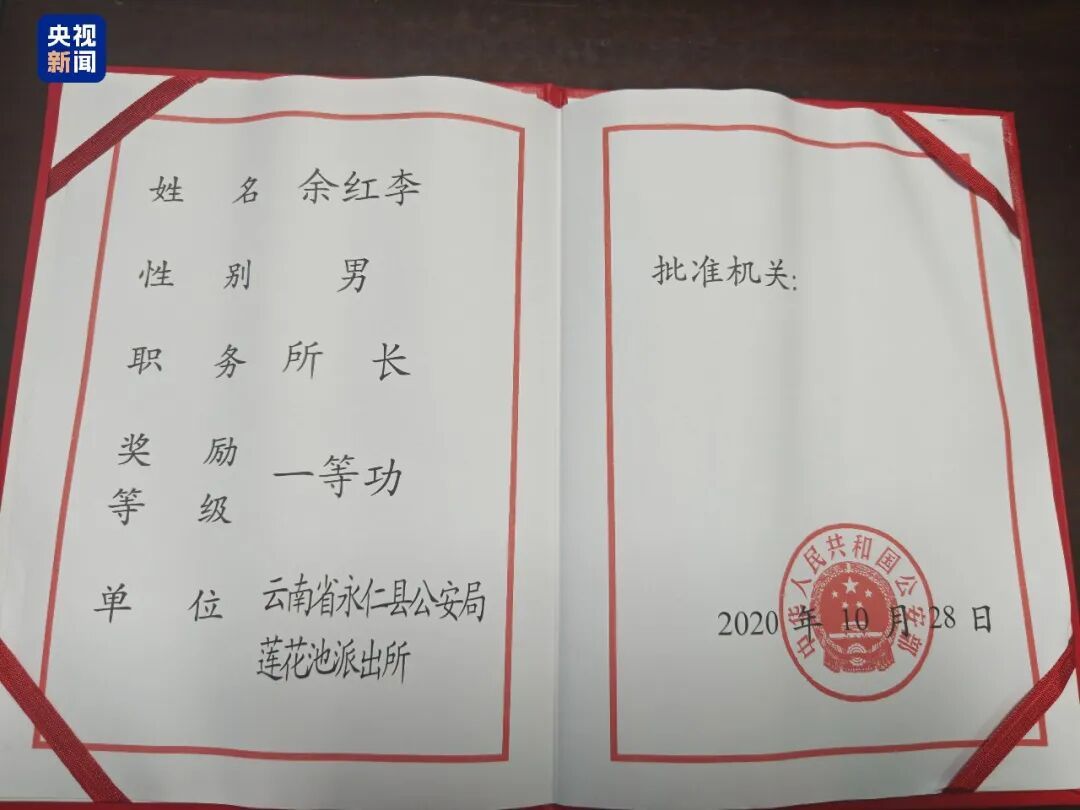 央视
新闻
姓 名 余红李
性 别 男
职 务 所 长
奖 励
等 级 一等功
单 位 云南省永仁县公安局
莲花池派出所
批准机关:
中华人民共和国公安部
2020 年 10 月 28 日